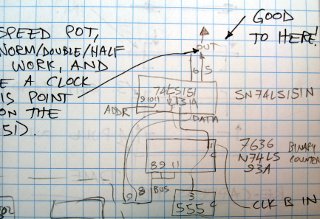 SPEED POT,
NORM/DOUBLE/HALF
WORK, AND
E A CLOCK
IS POINT
ON THE
51).
GOOD
TO HERE!
OUT
6 5
74LS151
SN74LS151N
7 9 10 11
ADDR
DATA
11
7636
N74LS
93A
BINARY
COUNTER
8 9 11
9 8
BUS
3
555
CLK B IN